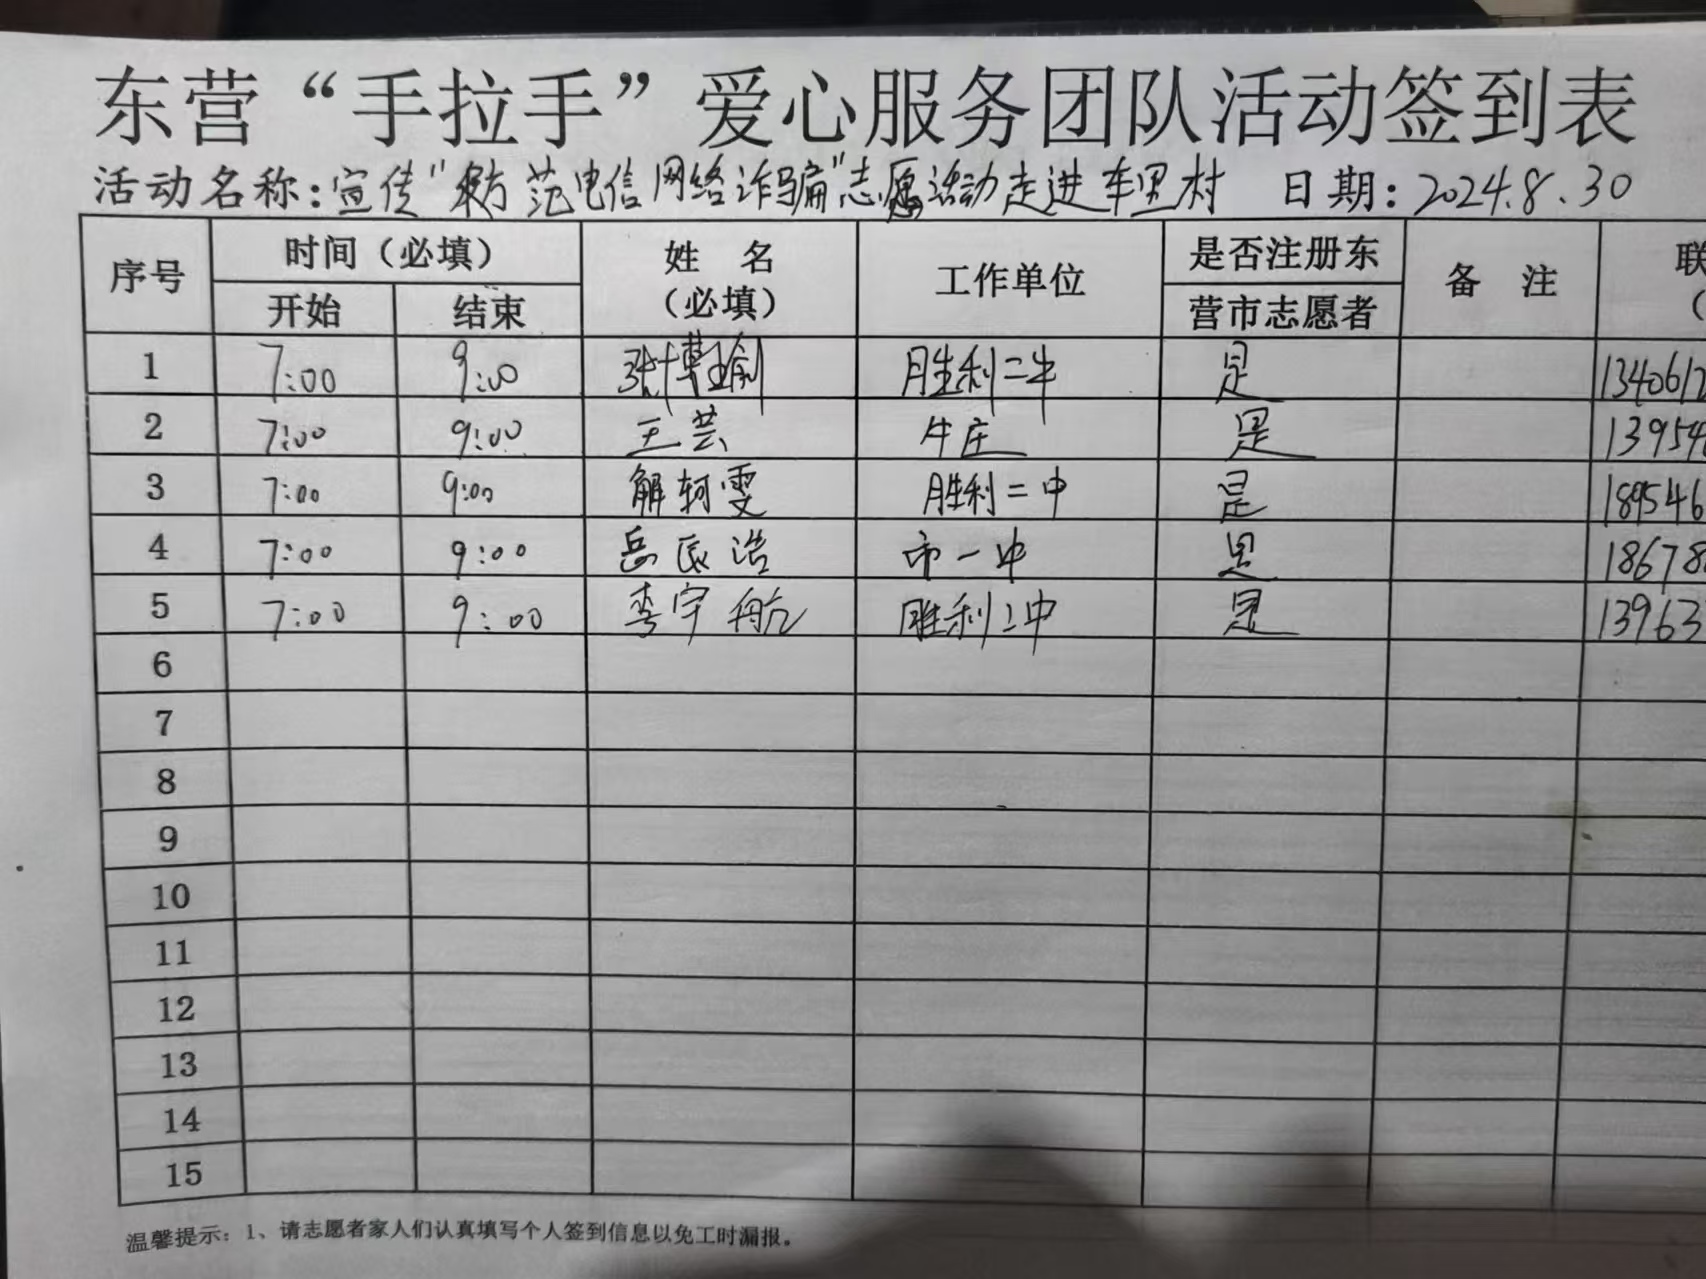 东营“手拉手”爱心服务团队活动签到表
活动名称：宣传“防范电信网络诈骗”志愿活动走进车里村 日期：2024.8.30
序号 时间（必填） 姓 名（必填） 工作单位 是否注册东营市志愿者 备 注 联
开始 结束 （
1 7:00 9:00 张博瑜 胜利二中 是 1340612
2 7:00 9:00 王芸 牛庄 是 13954
3 7:00 9:00 解轲雯 胜利二中 是 189546
4 7:00 9:00 岳辰浩 市一中 是 18678
5 7:00 9:00 李宇航 胜利二中 是 13963
6
7
8
9
10
11
12
13
14
15
温馨提示：1、请志愿者家人们认真填写个人签到信息以免工时漏报。